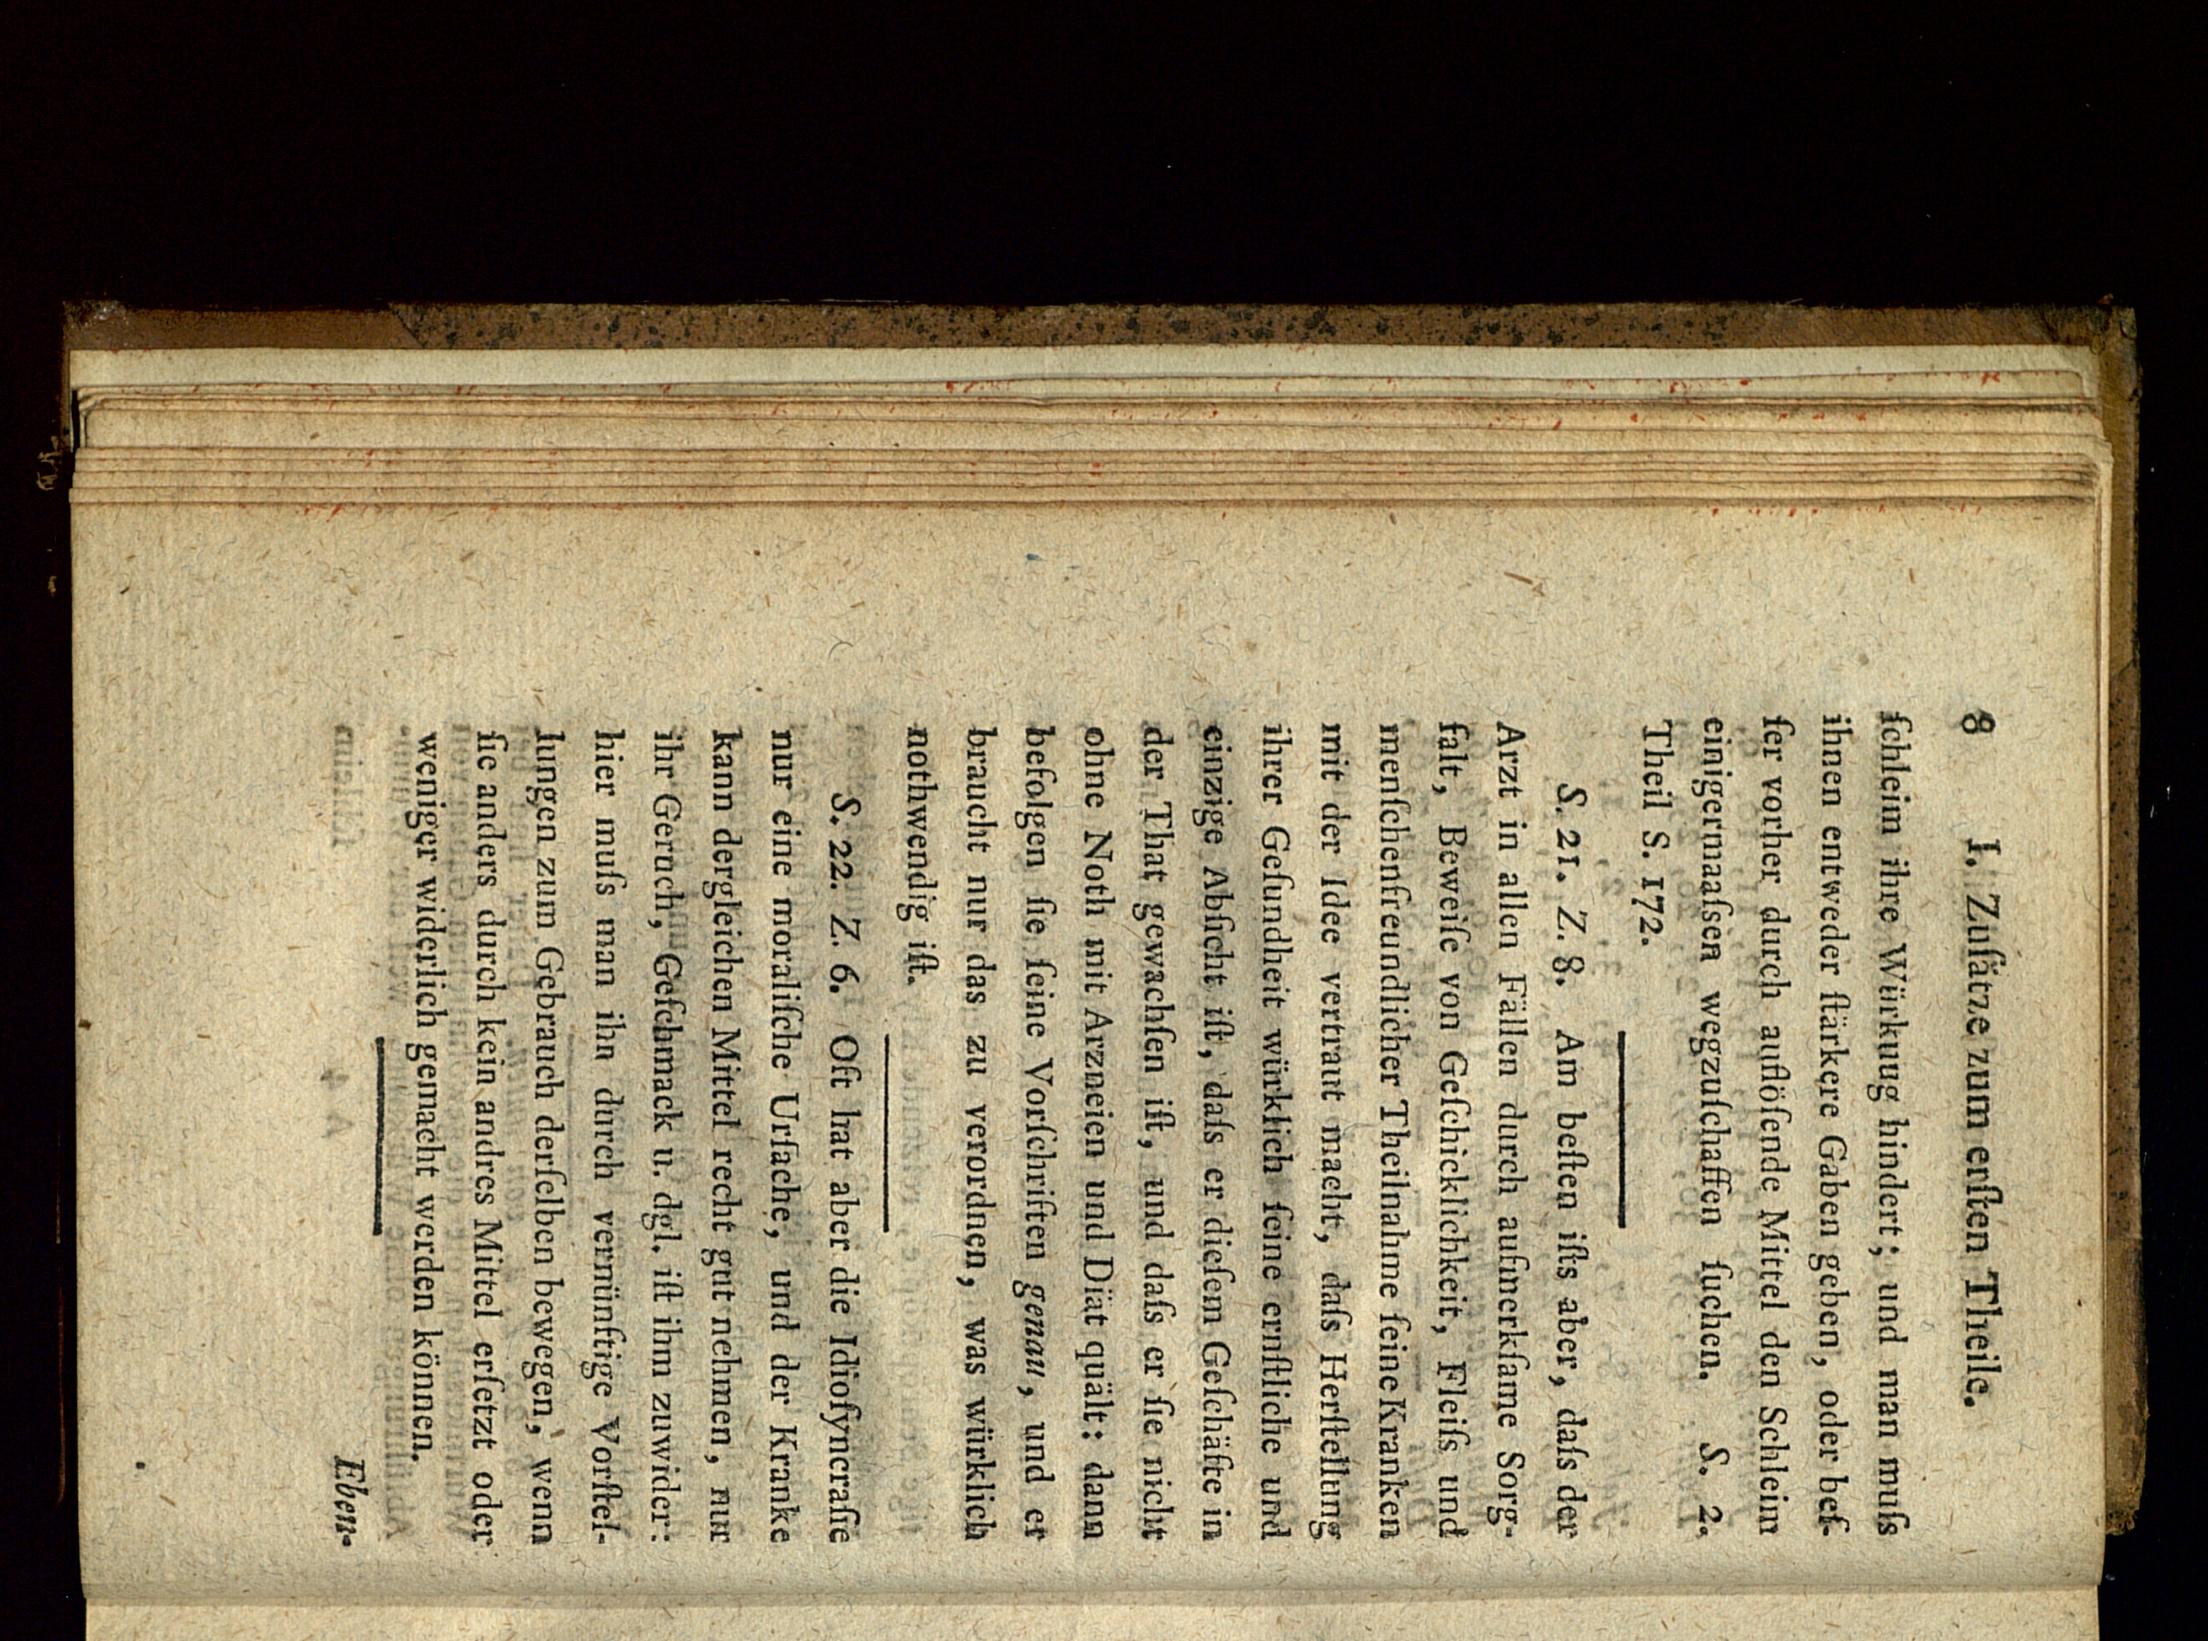 8 I. Zuſätze zum erſten Theile.
ſchleim ihre Würkuug hindert; und man muſs
ihnen entweder ſtärkere Gaben geben, oder beſ-
ſer vorher durch auflöſende Mittel den Schleim
einigermaaſsen wegzuſchaffen ſuchen. S. 2.
Theil S. 172.
S. 21. Z. 8. Am beſten iſts aber, daſs der
Arzt in allen Fällen durch aufmerkſame Sorg-
falt, Beweiſe von Geſchicklichkeit, Fleiſs und
menſchenfreundlicher Theilnahme ſeine Kranken
mit der Idee vertraut macht, daſs Herſtellung
ihrer Geſundheit würklich ſeine ernſtliche und
einzige Abſicht iſt, daſs er dieſem Geſchäfte in
der That gewachſen iſt, und daſs er ſie nicht
ohne Noth mit Arzneien und Diät quält: dann
befolgen ſie ſeine Vorſchriften genau, und er
braucht nur das zu verordnen, was würklich
nothwendig iſt.
S. 22. Z. 6. Oft hat aber die Idioſyncraſie
nur eine moraliſche Urſache, und der Kranke
kann dergleichen Mittel recht gut nehmen, nur
ihr Geruch, Geſchmack u. dgl. iſt ihm zuwider:
hier muſs man ihn durch vernünftige Vorſtel-
lungen zum Gebrauch derſelben bewegen, wenn
ſie anders durch kein andres Mittel erſetzt oder
weniger widerlich gemacht werden können.
Eben-